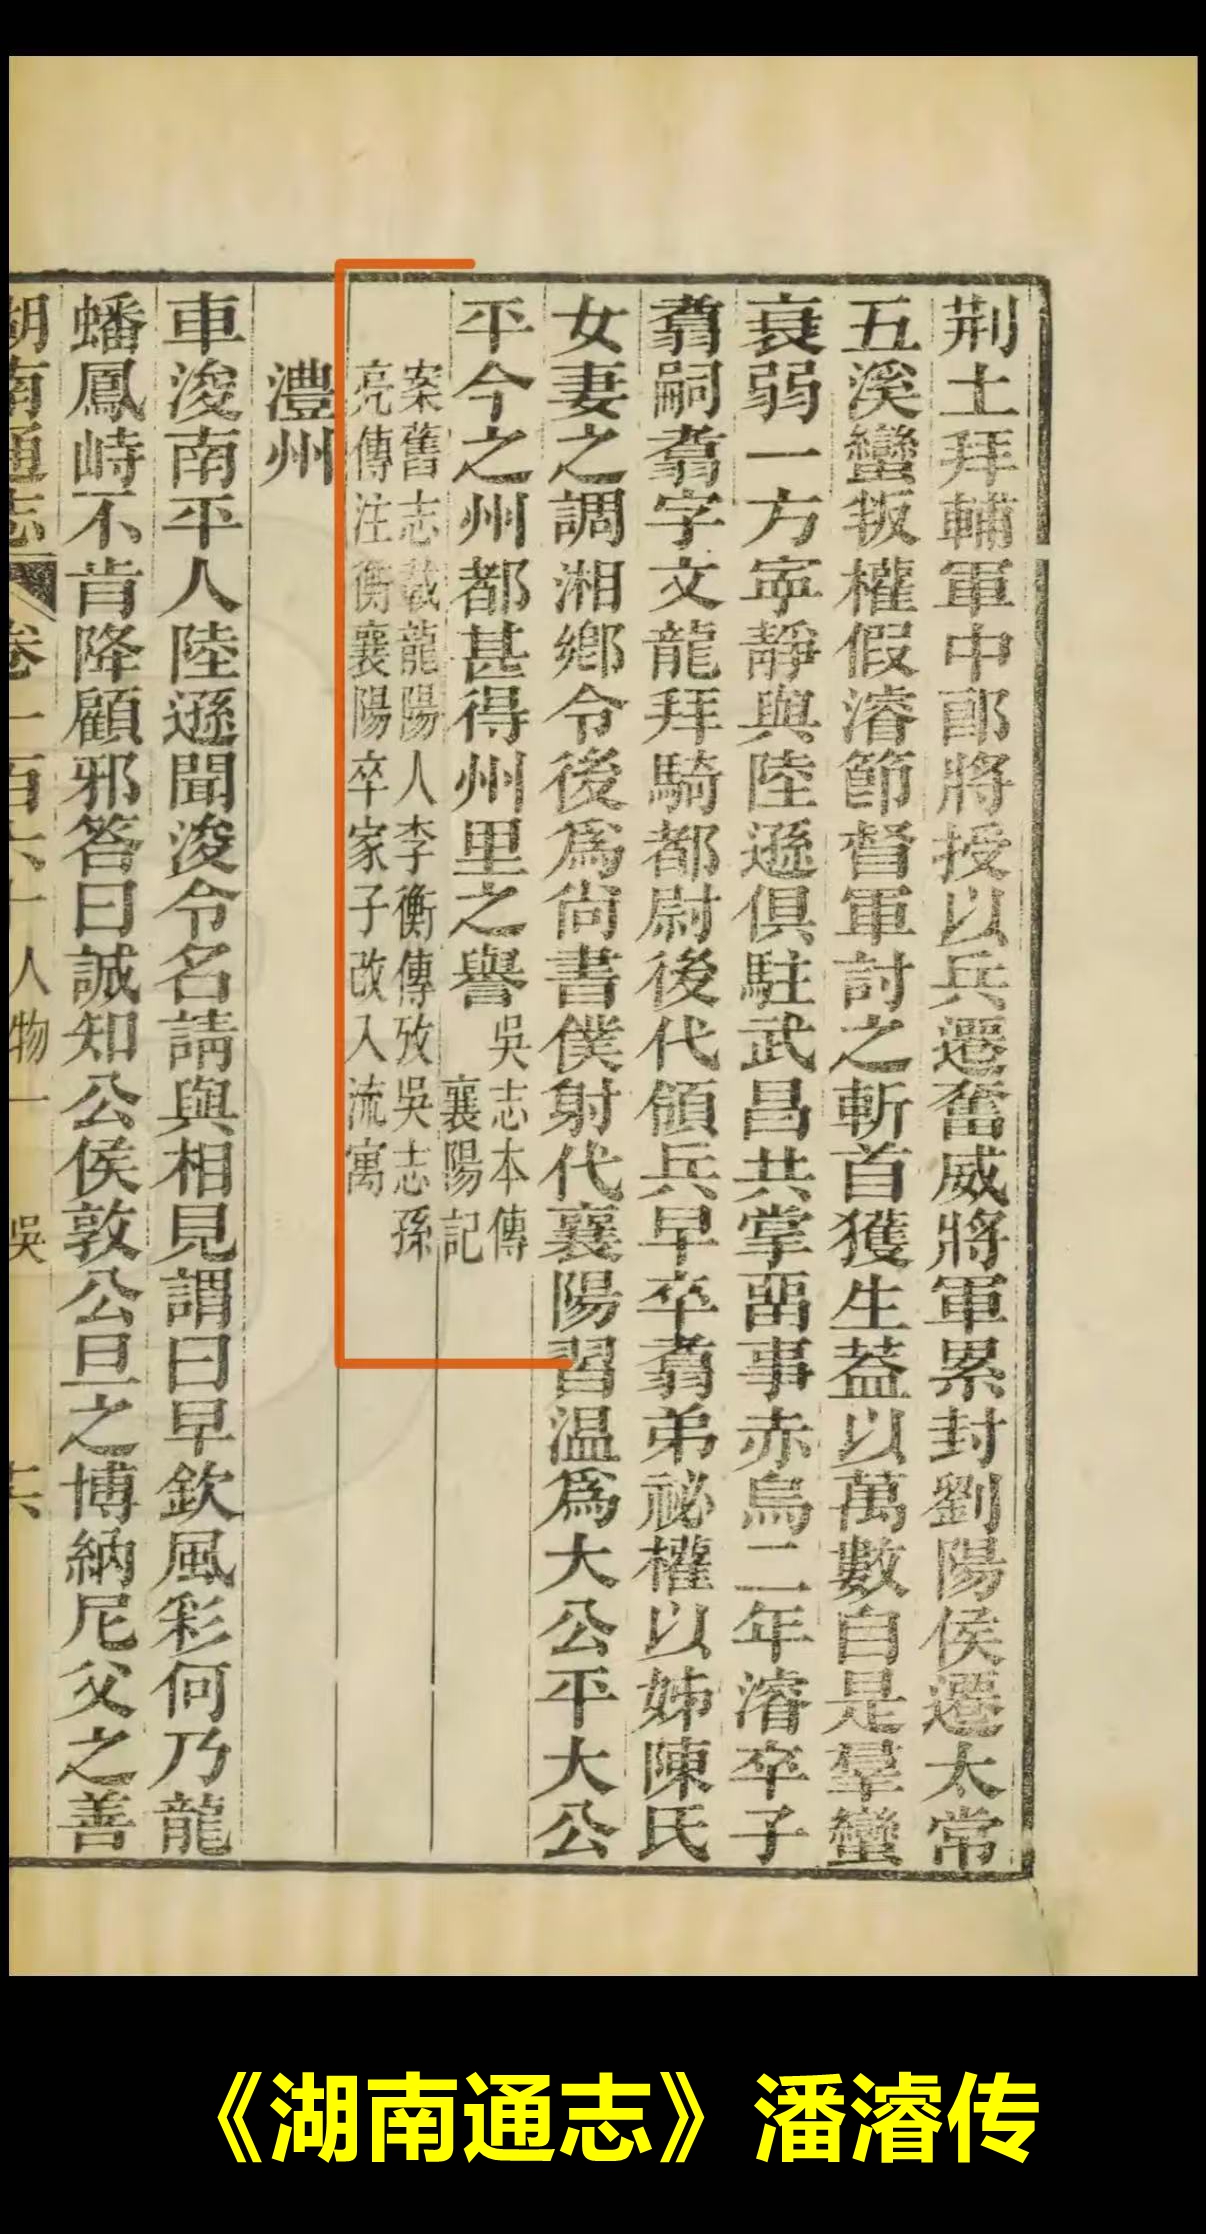 荆土拜輔軍中郎將授以兵遷奮威將軍累封劉陽侯遷太常
五溪蠻叛權假濬節督軍討之斬首獲生葢以萬數自是羣蠻
衰弱一方寍靜與陸遜俱駐武昌共掌畱事赤烏二年濬卒子
翥嗣翥字文龍拜騎都尉後代領兵早卒翥弟祕權以姊陳氏
女妻之調湘鄉令後爲尙書僕射代襄陽習温爲大公平大公
平今之州都甚得州里之譽
吳志本傳
襄陽記
案舊志載龍陽人李衡傳攷吳志孫
亮傳注衡襄陽卒家子改入流寓
澧州
車浚南平人陸遜聞浚令名請與相見謂曰早欽風彩何乃龍
蟠鳳峙不肯降顧邪答曰誠知公侯敦公旦之博納尼父之善
湖南通志
卷一百六十
人物一
吳
六
《湖南通志》潘濬传